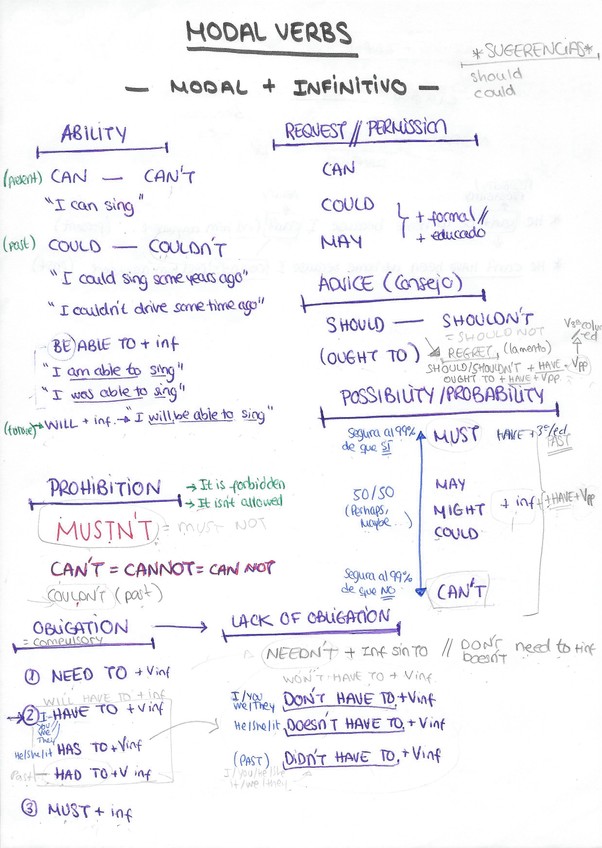 MODAL VERBS
*SUGERENCIAS*
should
could
— MODAL + INFINITIVO —
ABILITY
(present) CAN — CAN'T
"I can sing"
(past) COULD — COULDN'T
"I could sing some years ago"
"I couldn't drive some time ago"
BE ABLE TO + inf
"I am able to sing"
"I was able to sing"
(future) → WILL + inf. → "I will be able to sing"
REQUEST // PERMISSION
CAN
COULD
MAY
+ formal//
+ educado
ADVICE (Consejo)
SHOULD — SHOULDN'T
= SHOULD NOT
(OUGHT TO)
REGRET, (lamento)
SHOULD/SHOULDN'T + HAVE + VPP
OUGHT TO + HAVE + VPP
/-ed
POSSIBILITY/PROBABILITY
Segura al 99%
de que SÍ
MUST
HAVE + 3ª/ed
PAST
50/50
(Perhaps,
Maybe...)
MAY
MIGHT
COULD
+ inf
+ HAVE + VPP
Segura al 99%
de que NO
CAN'T
PROHIBITION
→ It is forbidden
→ It isn't allowed
MUSTN'T = MUST NOT
CAN'T = CANNOT = CAN NOT
COULDN'T (past)
OBLIGATION
= compulsory
① NEED TO + Vinf
WILL HAVE TO + inf
② I HAVE TO + Vinf
You
We
They
He/she/it HAS TO + Vinf
Past HAD TO + V inf
③ MUST + inf
LACK OF OBLIGATION
NEEDN'T + Inf sin to // DON'T
Doesn't need to + inf
WON'T HAVE TO + Vinf
I/you
we/they DON'T HAVE TO + Vinf
He/she/it DOESN'T HAVE TO + Vinf
(PAST) DIDN'T HAVE TO + Vinf
I/you/he/she
it/we/they